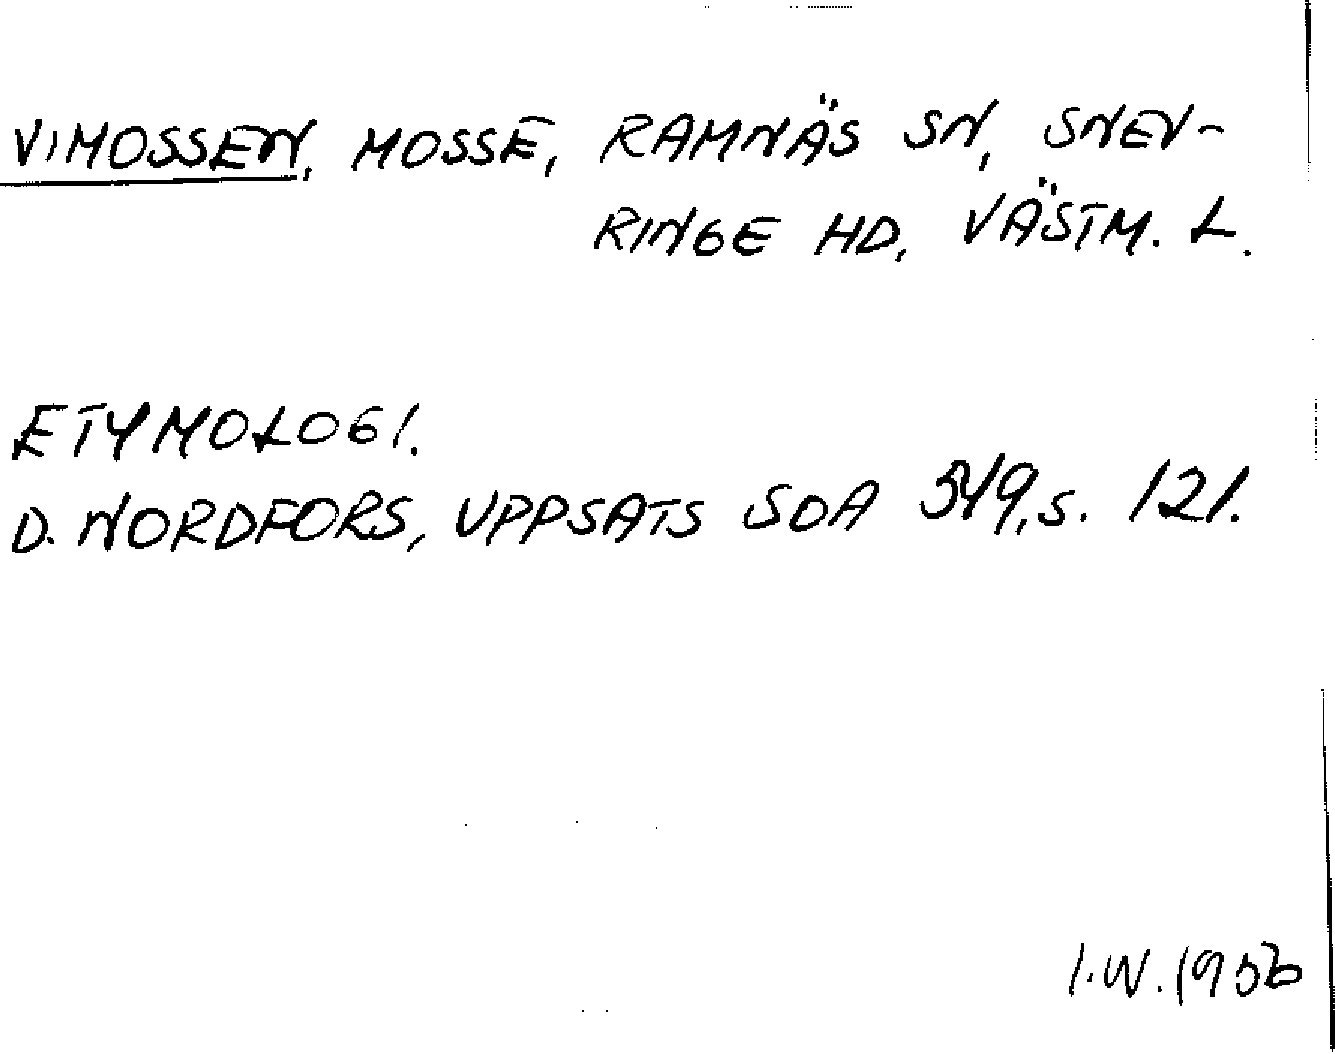 VIMOSSEN, MOSSE, RAMNÄS SN, SNEV-
RINGE HD, VÄSTM. L.
ETYMOLOGI.
D. NORDFORS, UPPSATS SOA 549, S. 121.
I.W. 1956